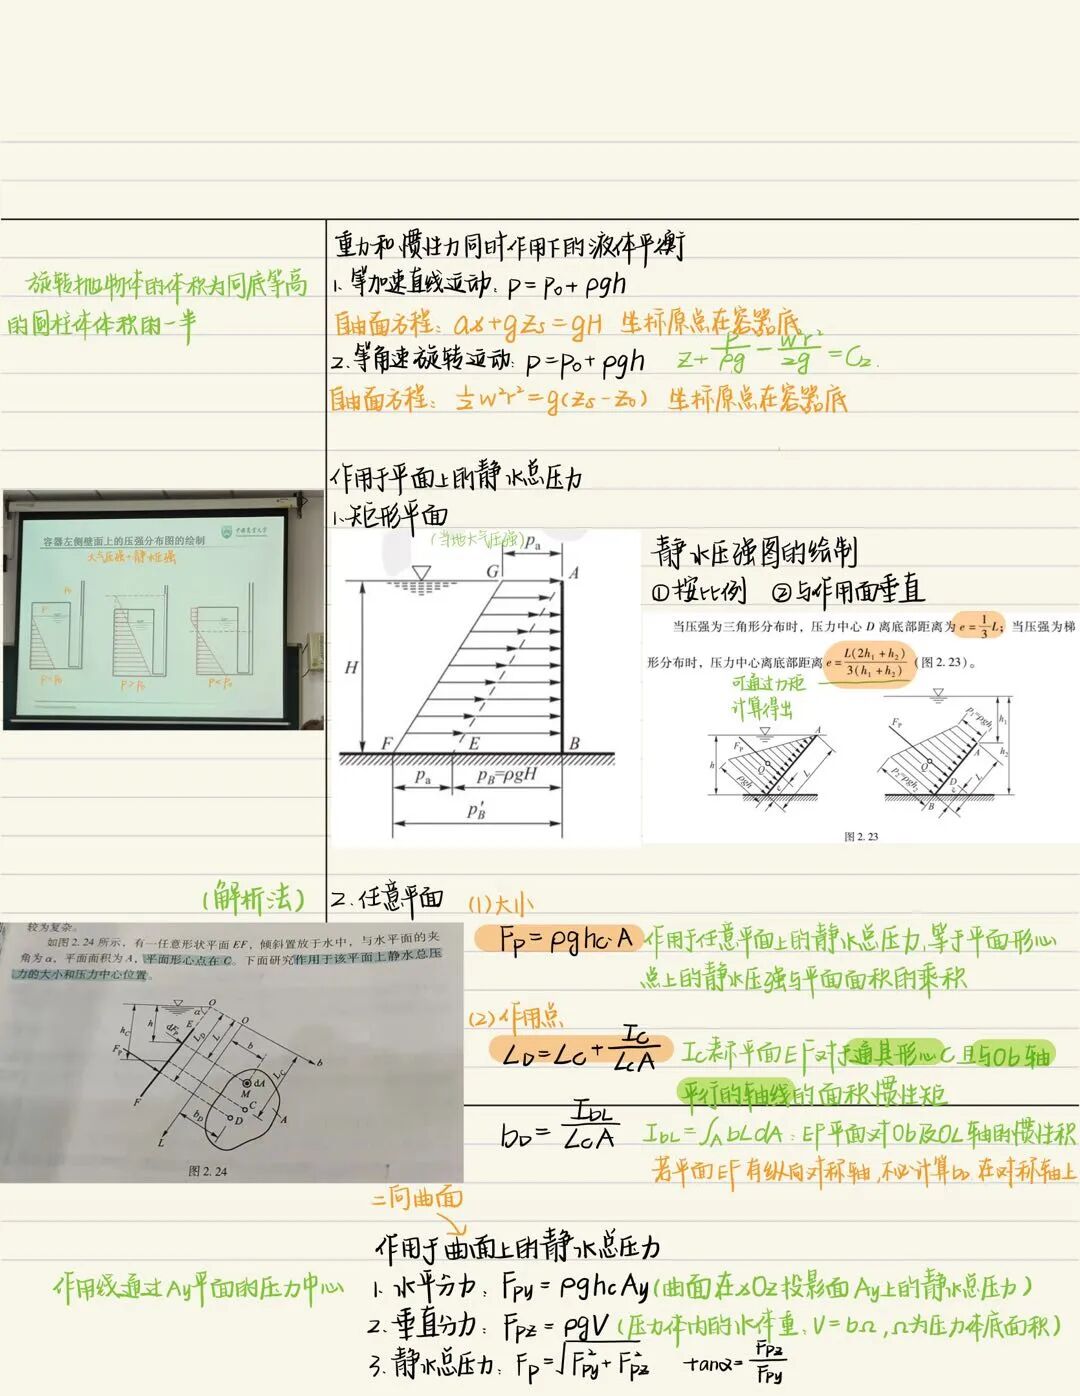 重力和惯性力同时作用下的液体平衡
旋转抛物体的体积为同底等高
的圆柱体体积的一半
1. 等加速直线运动: p = p₀ + ρgh
自由面方程: ax + gzs = gH 坐标原点在容器底
2. 等角速旋转运动: p = p₀ + ρgh z + p/ρg − w²r²/2g = C₂.
自由面方程: ½w²r² = g(zs − z₀) 坐标原点在容器底
作用于平面上的静水总压力
1. 矩形平面
容器左侧壁面上的压强分布图的绘制
中国农业大学
大气压强+静水压强
P₀
P=P₀
P>P₀
P<P₀
(当地大气压强)
pa
G
A
H
F
E
B
pa
pB=ρgH
p′B
静水压强图的绘制
①按比例 ②与作用面垂直
当压强为三角形分布时，压力中心 D 离底部距离为 e = 1/3 L；当压强为梯
形分布时，压力中心离底部距离 e = L(2h₁+h₂)/3(h₁+h₂)（图 2.23）。
可通过力矩
计算得出
FP
A
h
ρgh
L
e
FP
p₁=ρgh₁
A
h₁
h₂
p₂=ρgh₂
D
L
e
B
图 2.23
(解析法)
2. 任意平面
(1) 大小
FP = ρghc·A 作用于任意平面上的静水总压力,等于平面形心
点上的静水压强与平面面积的乘积
较为复杂。
如图 2.24 所示，有一任意形状平面 EF，倾斜置放于水中，与水平面的夹
角为 α，平面面积为 A，平面形心点在 C。下面研究作用于该平面上静水总压
力的大小和压力中心位置。
O
α
hC
h
E
dFP
LD
L
O
b
b
FP
LC
dA
M
C
A
D
F
bD
L
图 2.24
(2) 作用点
LD = LC + IC/LCA IC表示平面EF对于通其形心C且与Ob轴
平行的轴线的面积惯性矩
bD = IbL/LCA IbL = ∫A bLdA: EF平面对Ob及OL轴的惯性积
若平面EF有纵向对称轴,不必计算bD 在对称轴上
二向曲面
作用于曲面上的静水总压力
作用线通过Ay平面的压力中心
1. 水平分力: FPy = ρghcAy (曲面在xOz投影面Ay上的静水总压力)
2. 垂直分力: FPz = ρgV (压力体内的水体重; V=bΩ, Ω为压力体底面积)
3. 静水总压力: FP = √(F²Py + F²Pz) tanα = FPz/FPy